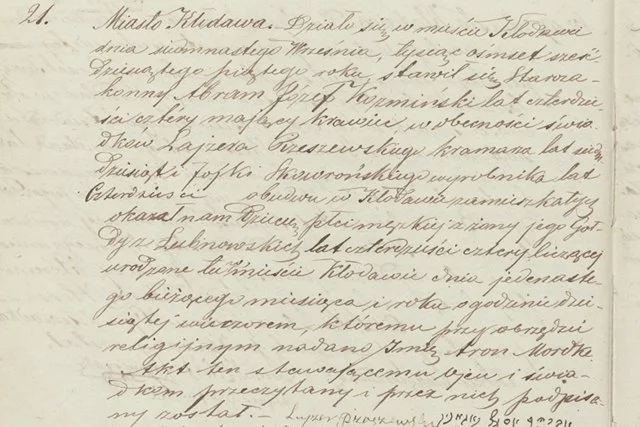 21. Miasto Kłodawa. Działo się w mieście Kłodawi
dnia siedmnastego Wresnia, tysiąc ośmset sześć
dziesiątego piątego roku, stawił się Staroza-
konny Abram Józef Kozmiński lat czterdzie
ści cztery mający krawiec, w obecności świa-
dków Lajzera Przeszewskiego kramarza lat
dziesiąt i Joski Skowrońskiego wyrobnika lat
Czterdzieści obudwu w Kłodawie zamieszkałych
okazał nam Dziecię płci męzkiej z żony jego Goł
dy z Lubnowskich lat czterdzieści cztery liczącej
urodzone tu w mieście Kłodawie dnia jedenaste-
go bieżącego miesiąca i roku o godzinie dzie
siątej wieczorem, któremu przy obrzędzie
religijnym nadano Imię Aron Mordka
Akt ten stawającemu ojcu i świa-
dkom przeczytany i przez nich podpisa-
ny został. – Lajzer